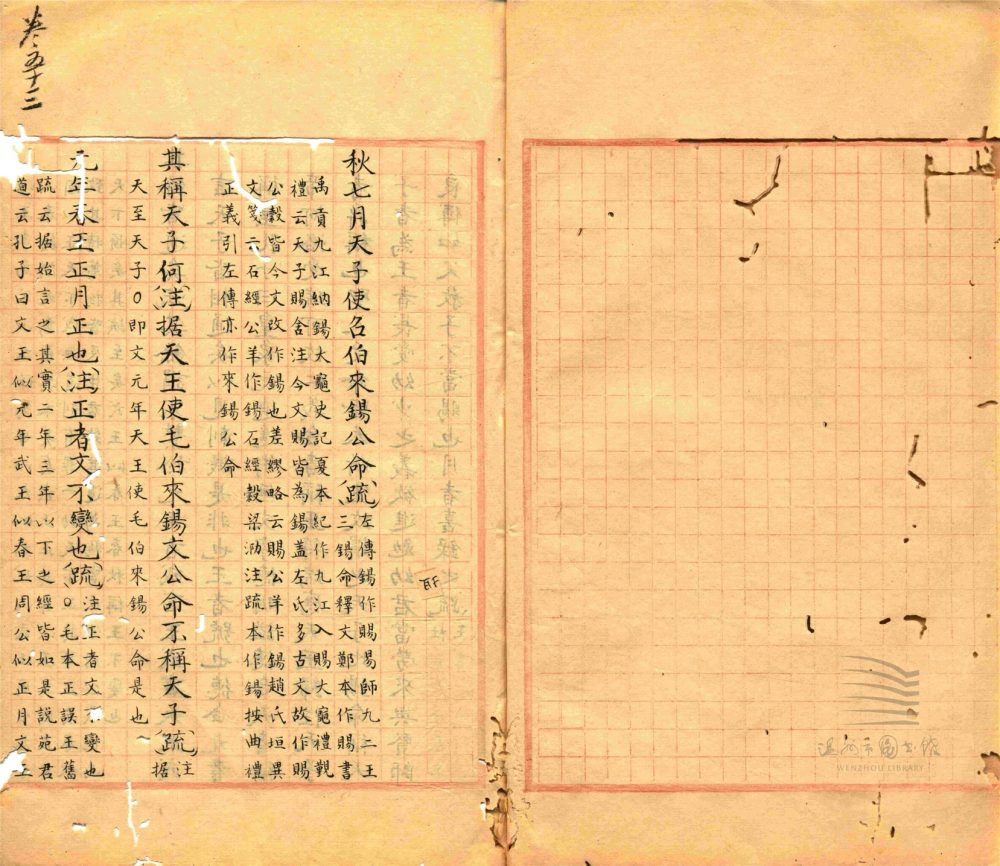 卷五十三
秋七月天子使召伯來錫公命(疏)左傳錫作賜易師九二王
三錫命釋文鄭本作賜書
禹貢九江納錫大龜史記夏本紀作九江入賜大龜禮覲
禮云天子賜舍注今文賜皆為錫蓋左氏多古文故作賜
公穀皆今文故作錫也差繆略云賜公羊作錫趙氏坦異
文箋云石經公羊作錫石經穀梁泐注疏本作錫按曲禮
正義引左傳亦作來錫公命
其稱天子何(注)据天王使毛伯來錫文公命不稱天子(疏)注
据
天至天子○即文元年天王使毛伯來錫公命是也
元年春王正月正也(注)正者文不變也(疏)注正者文不變也
○毛本正誤王舊
疏云据始言之其實二年三年以下之經皆如是說苑君
道云孔子曰文王似元年武王似春王周公似正月文王
温州市圖书館
WENZHOU LIBRARY